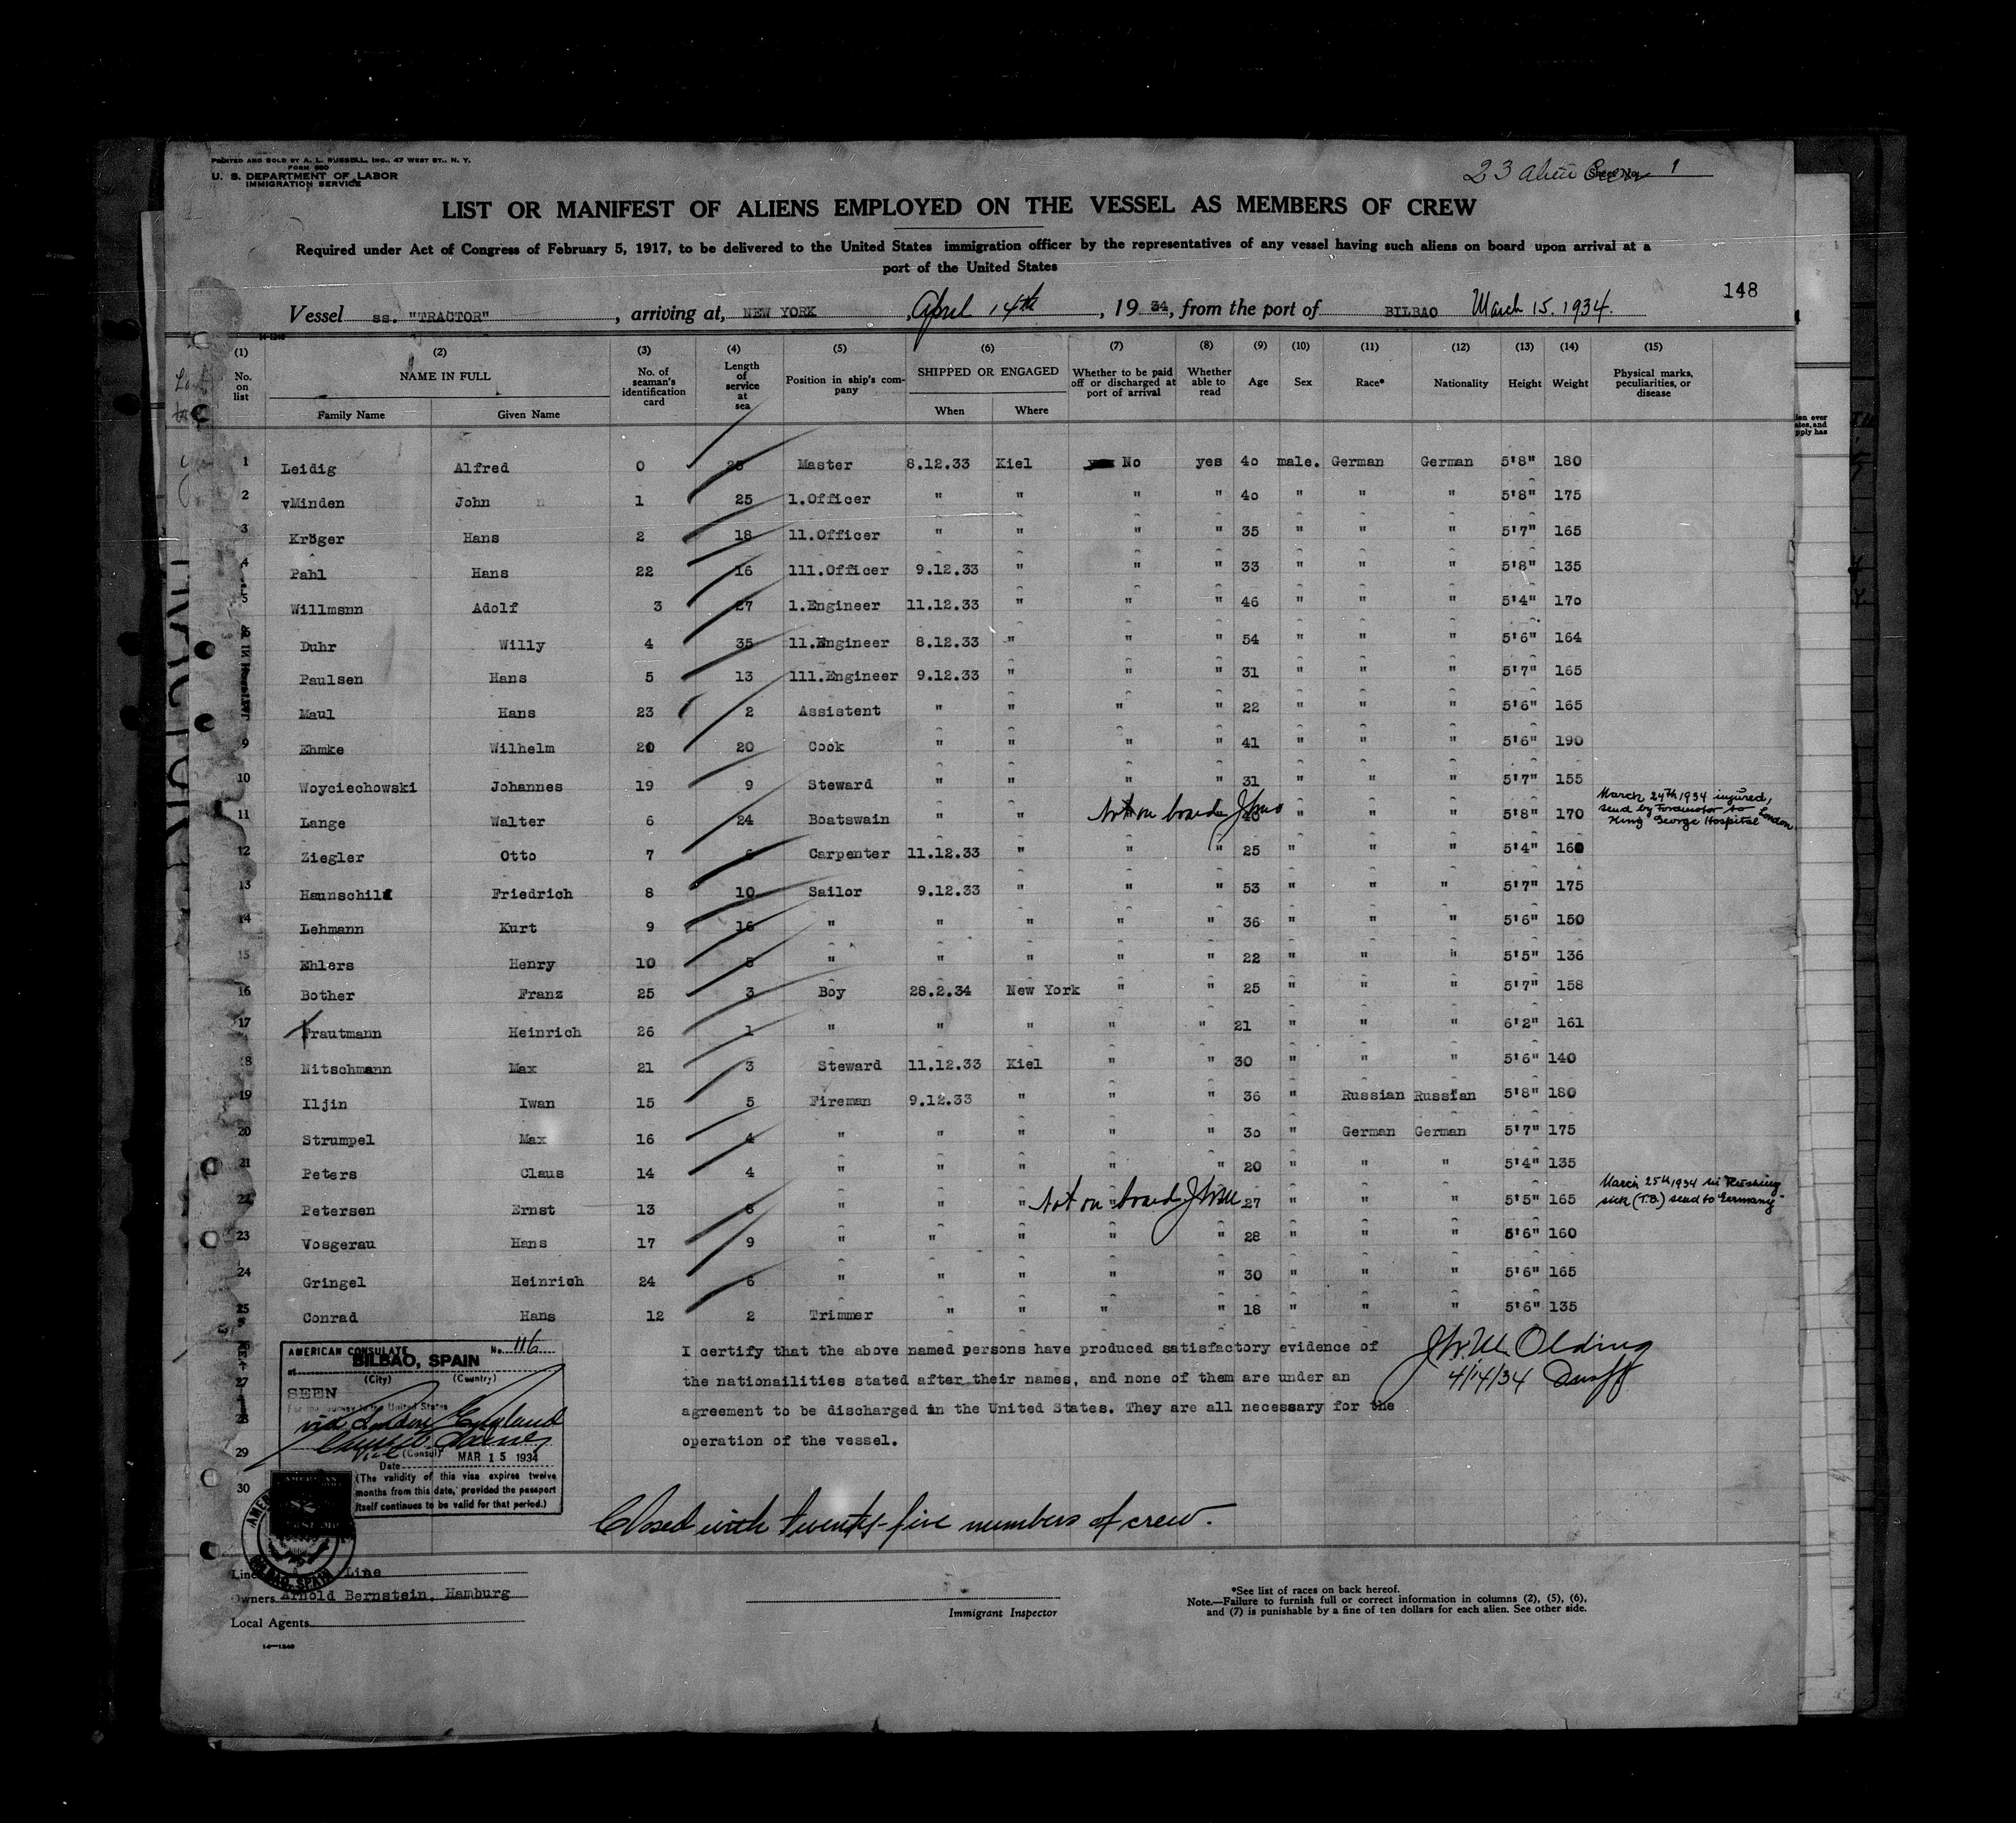 PRINTED AND SOLD BY A. L. RUSSELL, INC., 47 WEST ST., N. Y.
FORM 680
U. S. DEPARTMENT OF LABOR
IMMIGRATION SERVICE
23 alien Crew Sheet No. 1
LIST OR MANIFEST OF ALIENS EMPLOYED ON THE VESSEL AS MEMBERS OF CREW
Required under Act of Congress of February 5, 1917, to be delivered to the United States immigration officer by the representatives of any vessel having such aliens on board upon arrival at a
port of the United States
148
Vessel ss. "TRACTOR", arriving at, NEW YORK, April 14th, 19 34, from the port of BILBAO March 15. 1934.
14-1240
(1) (2) (3) (4) (5) (6) (7) (8) (9) (10) (11) (12) (13) (14) (15)
No. on list NAME IN FULL No. of seaman's identification card Length of service at sea Position in ship's company SHIPPED OR ENGAGED Whether to be paid off or discharged at port of arrival Whether able to read Age Sex Race* Nationality Height Weight Physical marks, peculiarities, or disease
Family Name Given Name When Where
1 Leidig Alfred 0 25 Master 8.12.33 Kiel No yes 4o male. German German 5'8" 180
2 vMinden John 1 25 1.Officer " " " " 4o " " " 5'8" 175
3 Kröger Hans 2 18 11.Officer " " " " 35 " " " 5'7" 165
4 Pahl Hans 22 16 111.Officer 9.12.33 " " " 33 " " " 5'8" 135
5 Willmsnn Adolf 3 27 1.Engineer 11.12.33 " " " 46 " " " 5'4" 17o
6 Duhr Willy 4 35 11.Engineer 8.12.33 " " " 54 " " " 5'6" 164
Paulsen Hans 5 13 111.Engineer 9.12.33 " " " 31 " " " 5'7" 165
Maul Hans 23 2 Assistent " " " " 22 " " " 5'6" 165
9 Ehmke Wilhelm 20 20 Cook " " " " 41 " " " 5'6" 190
10 Woyciechowski Johannes 19 9 Steward " " " " 31 " " " 5'7" 155
11 Lange Walter 6 24 Boatswain " " Not on board " " " 5'8" 170 March 24th 1934 injured, send by to London King George Hospital
12 Ziegler Otto 7 6 Carpenter 11.12.33 " " " 25 " " " 5'4" 160
13 Haunschild Friedrich 8 10 Sailor 9.12.33 " " " 53 " " " 5'7" 175
14 Lehmann Kurt 9 16 " " " " " 36 " " " 5'6" 150
15 Ehlers Henry 10 5 " " " " " 22 " " " 5'5" 136
16 Bother Franz 25 3 Boy 28.2.34 New York " " 25 " " " 5'7" 158
17 Trautmann Heinrich 26 1 " " " " " 21 " " " 6'2" 161
18 Nitschmann Max 21 3 Steward 11.12.33 Kiel " " 30 " " " 5'6" 140
19 Iljin Iwan 15 5 Fireman 9.12.33 " " " 36 " Russian Russian 5'8" 180
20 Strumpel Max 16 4 " " " " " 3o " German German 5'7" 175
21 Peters Claus 14 4 " " " " " 20 " " " 5'4" 135
22 Petersen Ernst 13 8 " " " Not on board 27 " " " 5'5" 165 March 25th 1934 in sick (T.B.) send to Germany
23 Vosgerau Hans 17 9 " " " " " 28 " " " 5'6" 160
24 Gringel Heinrich 24 6 " " " " " 30 " " " 5'6" 165
25 Conrad Hans 12 2 Trimmer " " " " 18 " " " 5'6" 135
AMERICAN CONSULATE No. 116
at BILBAO, SPAIN
(City) (Country)
SEEN
For the journey to the United States
via London England
Vice (Consul)
Date MAR 15 1934
(The validity of this visa expires twelve
months from this date, provided the passport
itself continues to be valid for that period.)
I certify that the above named persons have produced satisfactory evidence of
the nationailities stated after their names, and none of them are under an
agreement to be discharged in the United States. They are all necessary for the
operation of the vessel.
J.W.M. Olding
4/14/34
27
28
29
30
Closed with twenty-five numbers of crew.
BILBAO, SPAIN
Line Line
Owners Arnold Bernstein, Hamburg
Local Agents
14-1240
Immigrant Inspector
*See list of races on back hereof.
Note.—Failure to furnish full or correct information in columns (2), (5), (6),
and (7) is punishable by a fine of ten dollars for each alien. See other side.